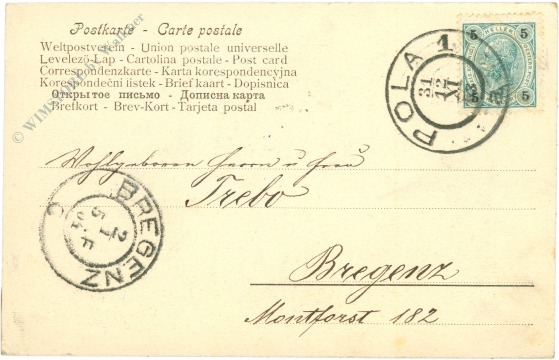 Postkarte - Carte postale
Weltpostverein - Union postale universelle
Levelező-Lap - Cartolina postale - Post card
Correspondenzkarte - Karta korespondencyjna
Korespondenční listek - Brief kaart - Dopisnica
Открытое письмо - Дописна карта
Brefkort - Brev-Kort - Tarjeta postal
5 HELLER 5
5 5
POLA 1
31 12
XI
BREGENZ
2
Wohlgeboren Herrn u Frau
Trebo
Bregenz
Montforst 182